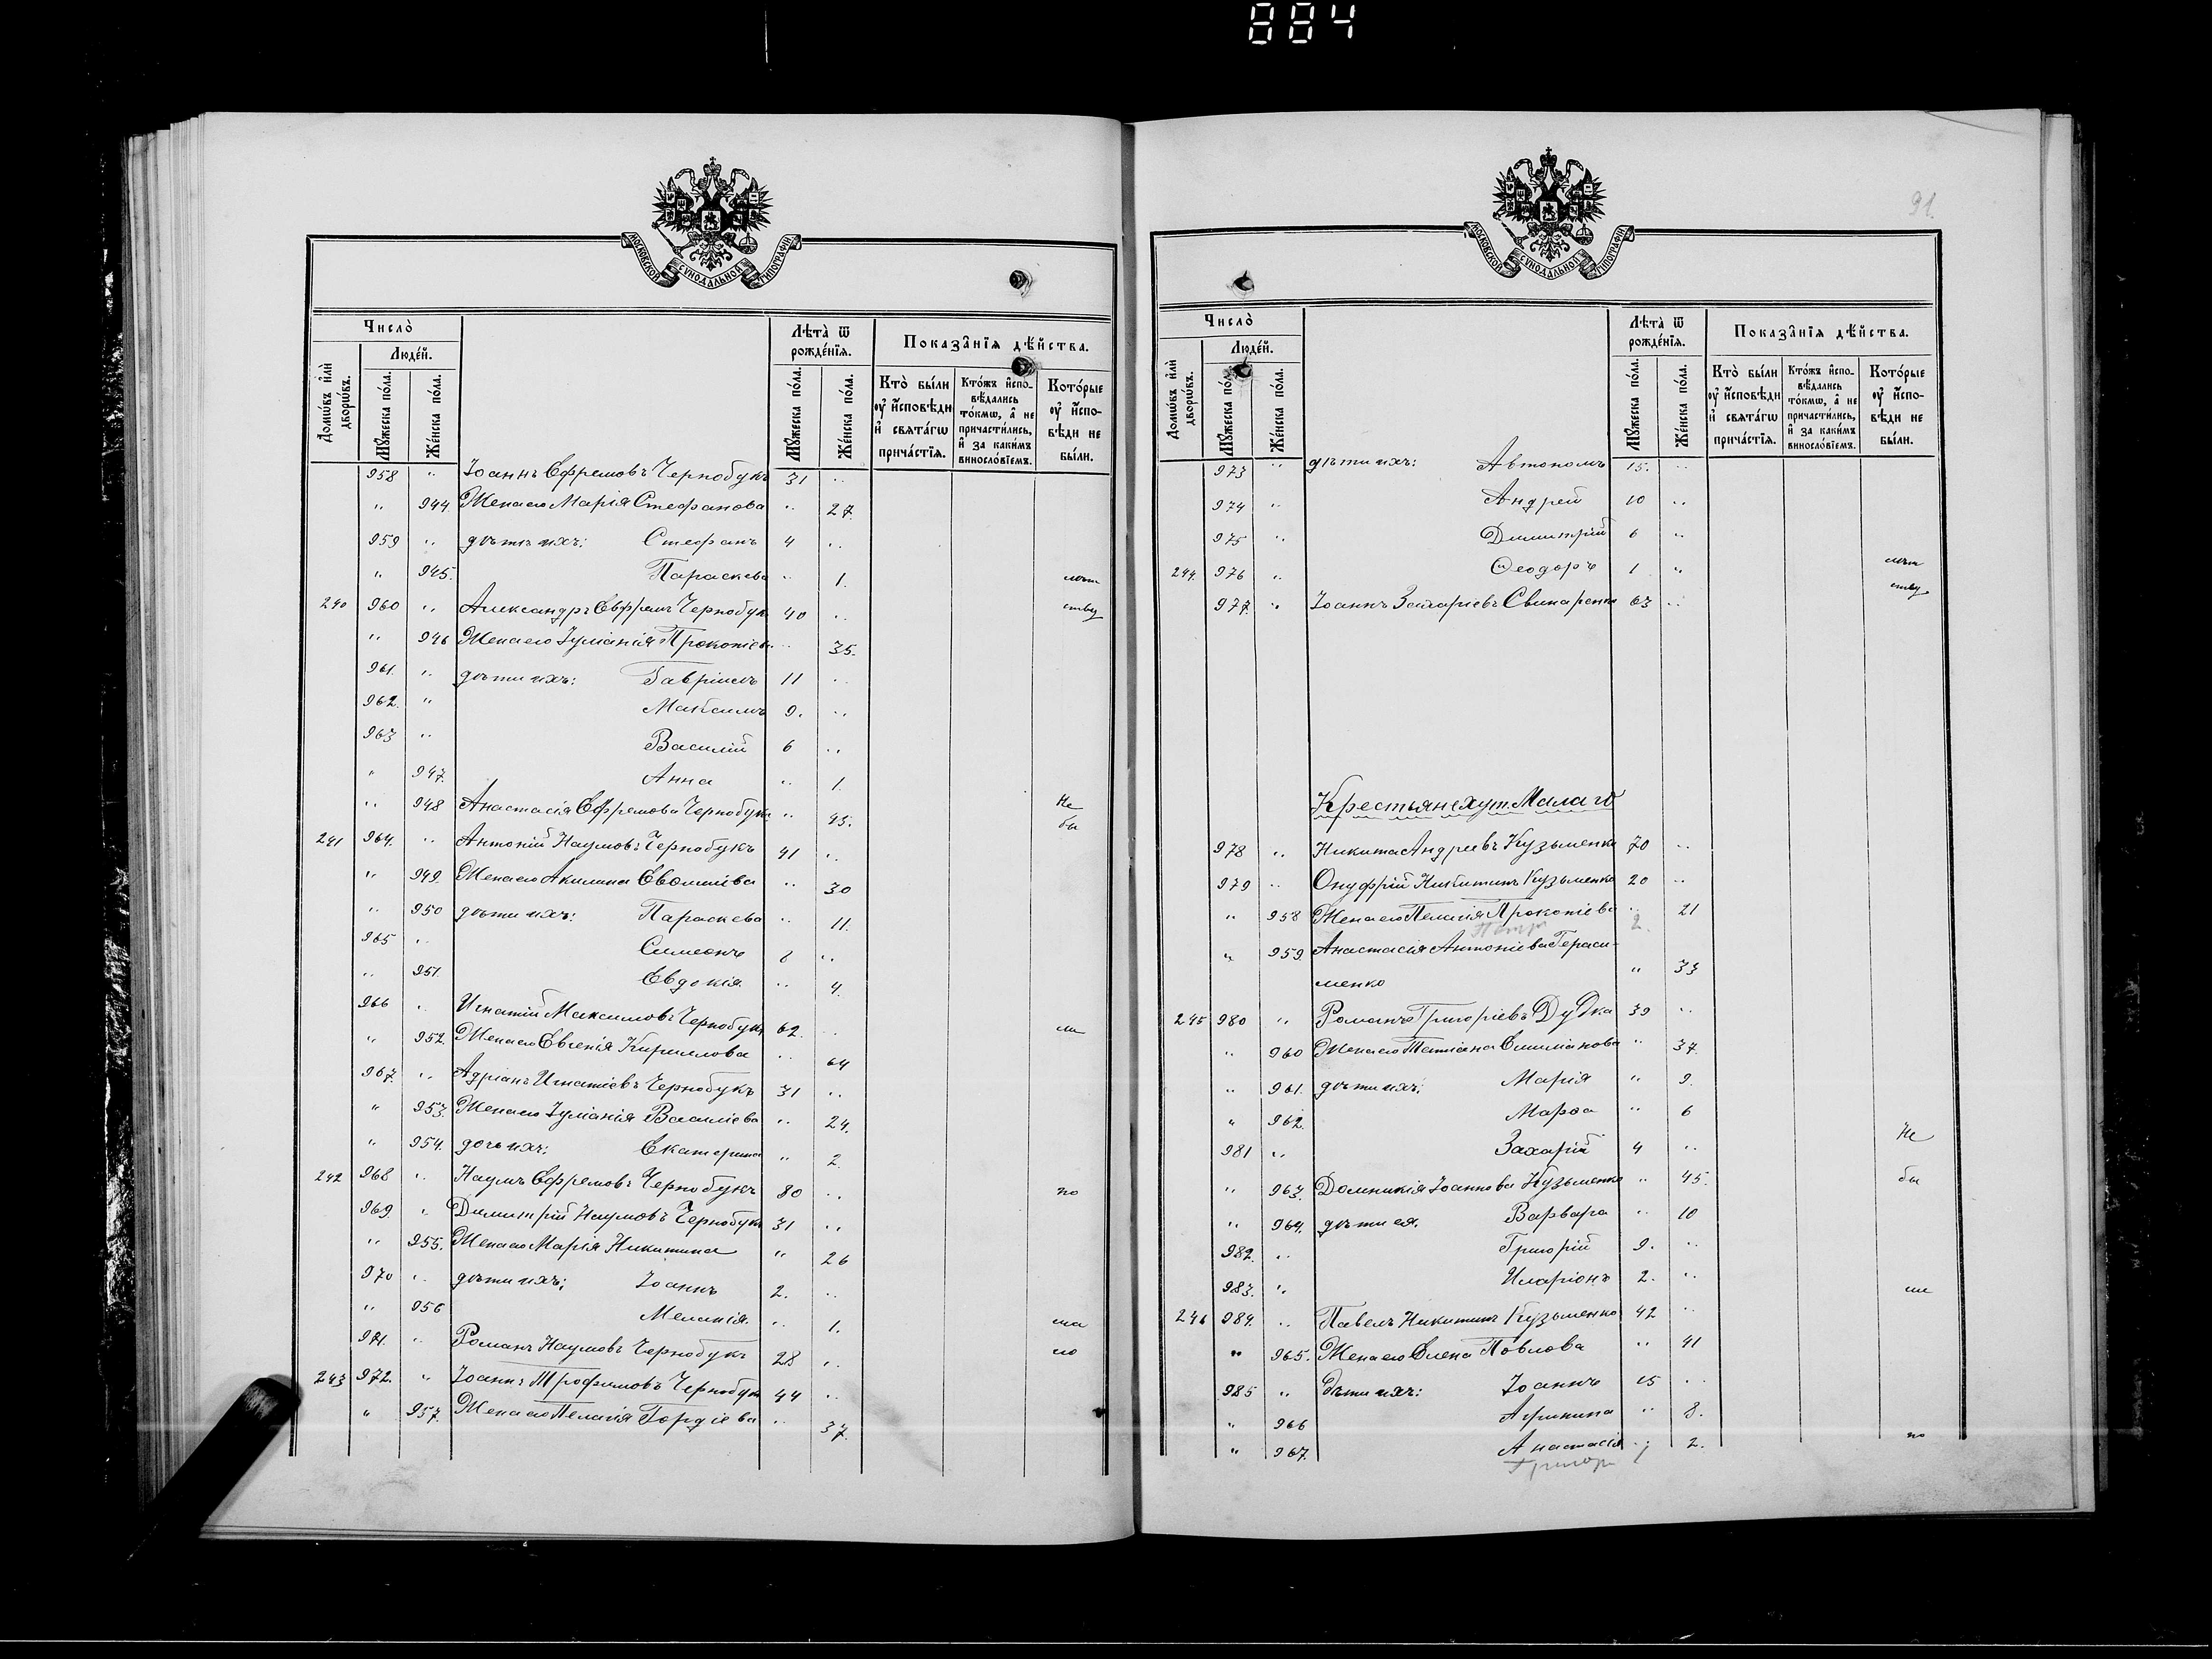 884
91.
МОСКОВСКОЙ СУНОДАЛЬНОЙ ТИПОГРАФІИ
Число̀
Люде́й.
Домѡ́въ и҆лѝ дворѡ́въ.
Мꙋ́жеска по́ла.
Же́нска по́ла.
Лѣ́та ѿ рожде́нїѧ.
Мꙋ́жеска по́ла.
Же́нска по́ла.
Показа̑нїѧ дѣ́йства.
Кто̀ бы́ли ᲂу҆ и҆́сповѣди и҆ свѧта́гѡ прича́стїѧ.
Кто́жъ и҆спо-вѣ́дались то́кмѡ, а҆ не причасти́лись, и҆ за каки́мъ винослѡ́вїемъ.
Кото́рые ᲂу҆ и҆́спо-вѣди не бы́ли.
958 " Іоаннъ Ефремовъ Чернобукъ 31 "
" 944. Жена его Марія Стефанова " 27.
959 " дѣти ихъ: Стефанъ 4 "
" 945. Параскева " 1.
240 960 " Александръ Ефрем. Чернобук 40 "
" 946 Жена его Іуліанія Прокопіева " 35.
961. " дѣти ихъ: Гавріилъ 11 "
962. " Максимъ 9. "
963 " Василій 6 "
" 947. Анна " 1.
" 948 Анастасія Ефремова Чернобук " 45. Не бы
241 964. " Антоній Наумовъ Чернобукъ 41 "
" 949. Жена его Акилина " 30
" 950 дѣти ихъ: Параскева " 11.
965 " Симеонъ 8 "
" 951. Евдокія " 4.
966 " Игнатій Максимовъ Чернобукъ 62. " ли
" 952. Жена его Евгенія Кириллова " 64
967. " Адріанъ Игнатіевъ Чернобукъ 31 "
" 953. Жена его Іуліанія Василіева " 24.
" 954. дочь ихъ: Екатерина " 2.
242 968 " Наумъ Ефремовъ Чернобукъ 80 " по
969. " Димитрій Наумовъ Чернобукъ 31 "
" 955. Жена его Марія Никитина " 26
970 " дѣти ихъ: Іоаннъ 2. "
" 956 Меланія. " 1.
971. " Романъ Наумовъ Чернобукъ 28 "
243 972. " Іоаннъ Трофимовъ Чернобук 44 "
" 957. Жена его Пелагія Гордіева " 37.
МОСКОВСКОЙ СУНОДАЛЬНОЙ ТИПОГРАФІИ
Число̀
Люде́й.
Домѡ́въ и҆лѝ дворѡ́въ.
Мꙋ́жеска по́ла.
Же́нска по́ла.
Лѣ́та ѿ рожде́нїѧ.
Мꙋ́жеска по́ла.
Же́нска по́ла.
Показа̑нїѧ дѣ́йства.
Кто̀ бы́ли ᲂу҆ и҆́сповѣди и҆ свѧта́гѡ прича́стїѧ.
Кто́жъ и҆спо-вѣ́дались то́кмѡ, а҆ не причасти́лись, и҆ за каки́мъ винослѡ́вїемъ.
Кото́рые ᲂу҆ и҆́спо-вѣди не бы́ли.
973 " дѣти ихъ: Автономъ 15. "
974 " Андрей 10 "
975 " Димитрій 6 "
244. 976 " Ѳеодоръ 1 "
977. " Іоаннъ Захаріевъ Свинаренко 63 "
Крестьяне хут. Малаго
978 " Никита Андреевъ Кузьменко 70 "
979 " Онуфрій Никитинъ Кузьменко 20 "
" 958 Жена его Пелагія Прокопіева " 21
Петръ 2.
" 959. Анастасія Антоніева Гераси-
менко " 33
245 980 " Романъ Григоріевъ Дудка 39 "
" 960 Жена его Татіана " 37.
" 961. дѣти ихъ: Марія " 9.
" 962. Марѳа " 6
981 " Захарій 4 " Не
" 963. Домникія Іоаннова Кузьменко " 45. бы
" 964. дѣти ея. Варвара " 10
982. " Григорій 9. "
983. " Иларіонъ 2. " ли
246 984. " Павелъ Никитинъ Кузьменко 42 "
" 965. Жена его Елена Повлова " 41
985 " Дѣти ихъ: Іоаннъ 15 "
" 966 Агрипина " 8.
" 967. Анастасія " 2. по
Григор 1